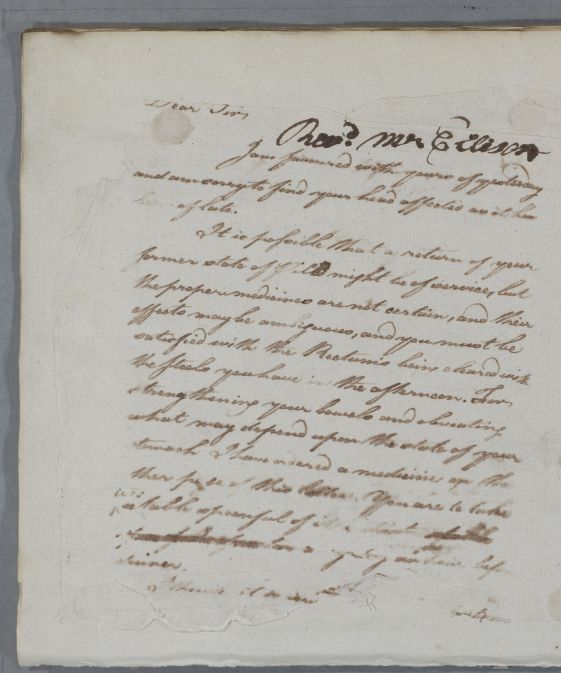 Dear Sir,
Revd. Mr Ellison
I am favoured with yours of yesterday
and am sorry to find your head affected as it has
been of late.
It is possible that a return of your
former state of might be of service, but
the proper medicines are not certain, and their
effects may be ambiguous, and you must be
satisfied with the Rectum's being cleared with
the stools you have in the afternoon. For
strengthening your bowels and obviating
what may depend upon the state of your
stomach I have ordered a medicine on the
other page of this letter. You are to take
a table spoonful of it
an hour before
dinner.
I think it